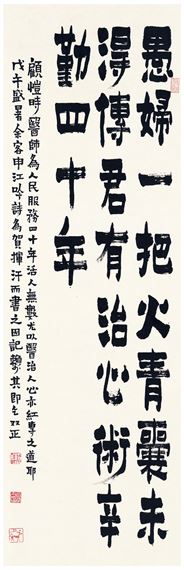 愚婦一把火青囊未
得傳君有治心術辛
勤四十年
顧愷時醫師為人民服務四十年活人無數尤以醫治人心亦紅專之道耶
戊午盛暑余客申江吟詩為賀揮汗而書之因記數其即乞正